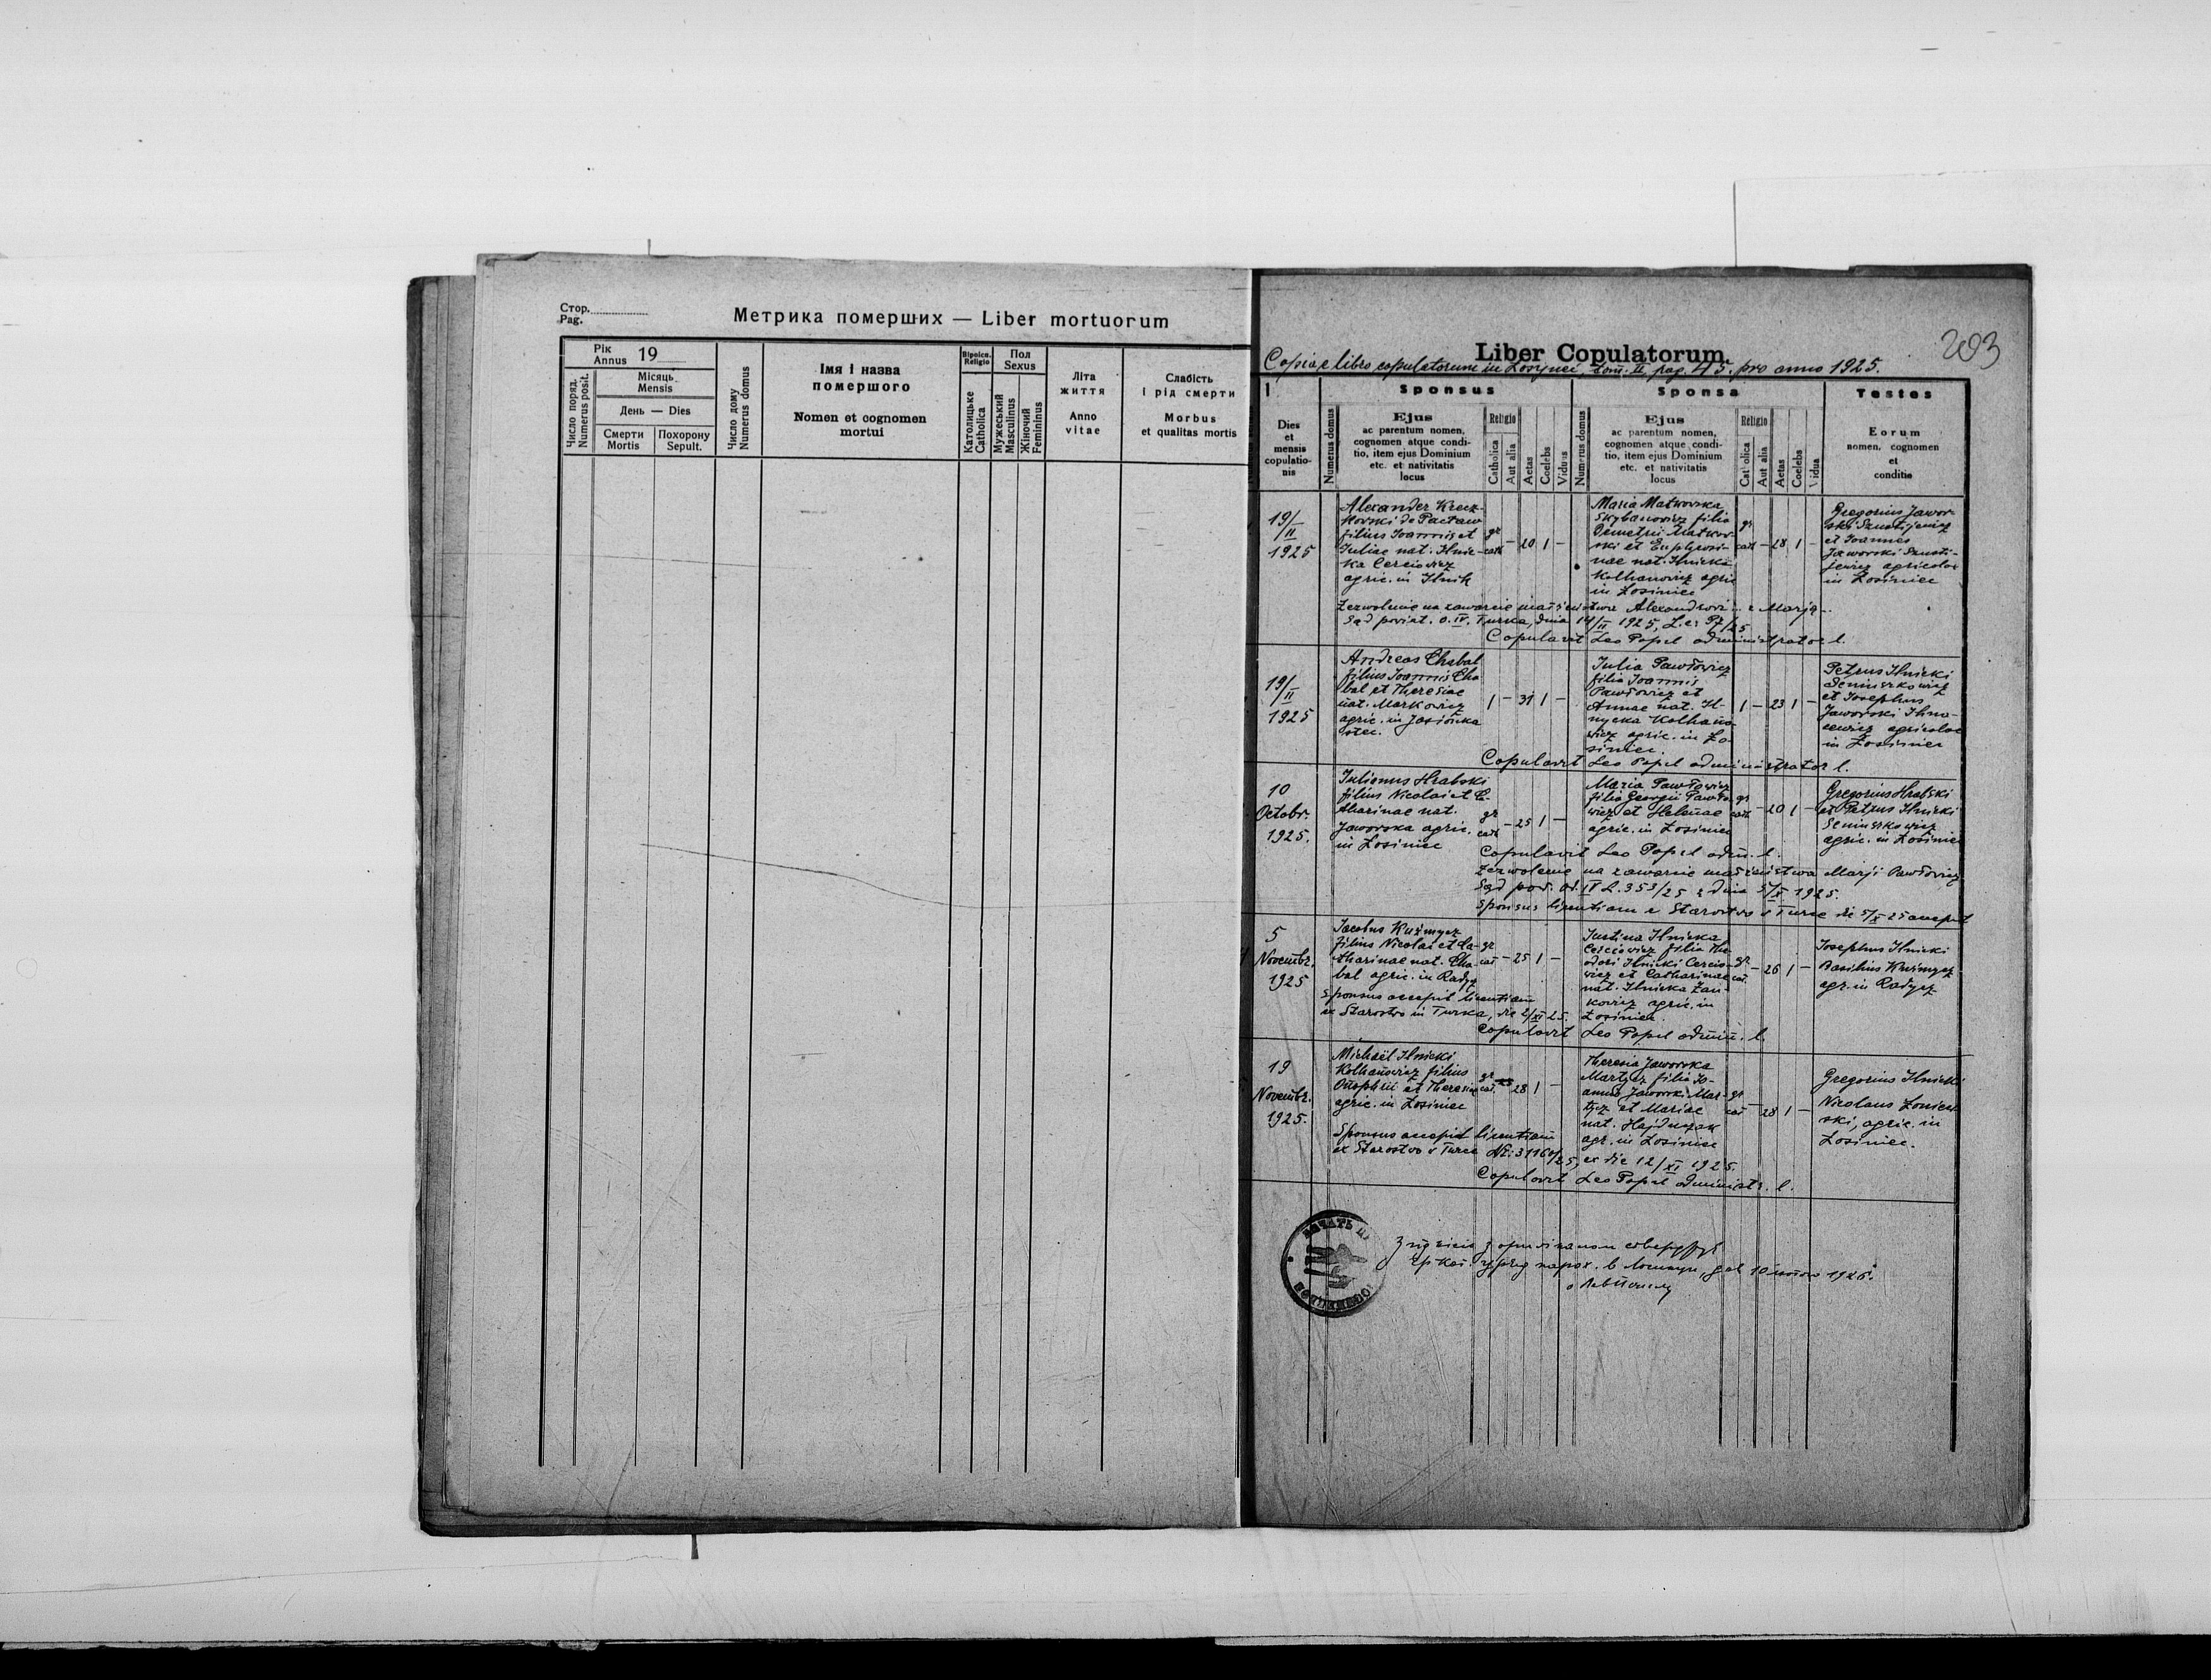 Стор.
Pag.
Метрика померших — Liber mortuorum
Рік
Annus 19
Число поряд.
Numerus posit.
Місяць
Mensis
День — Dies
Смерти
Mortis
Похорону
Sepult.
Число дому
Numerus domus
Імя і назва
помершого
Nomen et cognomen
mortui
Віроісп.
Religio
Католицьке
Catholica
Пол
Sexus
Мужеський
Masculinus
Жіночий
Femininus
Літа
життя
Anno
vitae
Слабість
і рід смерти
Morbus
et qualitas mortis
203
Liber Copulatorum
Copia e libro copulatorum in Łosyneć, tom. II, pag. 45. pro anno 1925.
1
Dies
et
mensis
copulatio-
nis
Sponsus
Numerus domus
Ejus
ac parentum nomen,
cognomen atque condi-
tio, item ejus Dominium
etc. et nativitatis
locus
Religio
Catholica
Aut alia
Aetas
Coelebs
Viduus
Sponsa
Numerus domus
Ejus
ac parentum nomen,
cognomen atque condi-
tio, item ejus Dominium
etc. et nativitatis
locus
Religio
Catholica
Aut alia
Aetas
Coelebs
Vidua
Testes
Eorum
nomen, cognomen
et
conditio
19/
/II
1925
Alexander Krecz-
kowski de
filius Joannis et
Juliae nat. Ilnic-
ka Cerciowicz
agric. in Ilnik
gr
cath
— 20 1 —
Maria Matkowska
Skybanowicz filia
Demetrii Matkow-
ski et Euphrosi-
nae nat. Ilnicka
Kolhanowicz agric
in Łosiniec
gr
cath
— 28 1 —
Gregorius Jawor-
ski
et Joannes
Jaworski
agricolae
in Łosiniec
Zezwolenie na zawarcie małżeństwa Alexandrowi z Marją
Sąd powiat. o. IV. Turka, dnia 14/II 1925, L.cz.
Copulavit Leo Popel administrator l.
19/
II
1925
Andreas Chabal
filius Joannis Cha
bal et Theresiae
nat. Markowicz
agric. in Jasionka
stec.
1 — 31 1 —
Julia Pawłowicz
filia Joannis
Pawłowicz et
Annae nat. Il-
nycka Kolhano-
wicz agric. in Ło-
siniec.
1 — 23 1 —
Petrus Ilnicki
Seniuszkowicz
et Josephus
Jaworski
agricolae
in Łosiniec
Copulavit Leo Popel administrator l.
10
Octobr.
1925.
Julianus Hrabski
filius Nicolai et Ca-
tharinae nat.
Jaworska agric.
in Łosiniec
gr
cath
— 25 1 —
Maria Pawłowicz
filia Georgii Pawło
wicz et Helenae
agric. in Łosiniec
gr
cath
— 20 1 —
Gregorius Hrabski
et Petrus Ilnicki
Seniuszkowicz
agric. in Łosiniec
Copulavit Leo Popel adm. l.
Zezwolenie na zawarcie małżeństwa Marji Pawłowicz
Sąd pow. od. IV L. 353/25 z dnia 5/X 1925.
Sponsus licentiam e Starostwo w Turce die 5/X 25 accepit
5
Novembr.
1925
Jacobus Kuźmycz
filius Nicolai et Ca-
tharinae nat. Cha-
bal agric. in Radycz
gr
cat
— 25 1 —
Sponsus accepit licentiam
ex Starostwo in Turka, die 2/XI 25.
Justina Ilnicka
Cerciowicz filia The-
odori Ilnicki Cercio-
wicz et Catharinae
nat. Ilnicka Zan-
kowicz agric. in
Łosiniec.
gr
cat.
— 26 1 —
Josephus Ilnicki
Basilius Kuźmycz
agr. in Radycz
Copulavit Leo Popel admin. l.
19
Novembr.
1925.
Michaël Ilnicki
Kolhanowicz filius
Onophrii et Theresiae
agric. in Łosiniec
gr
cat.
28 1 —
Theresia Jaworska
Martycz filia Jo-
annis Jaworski Mar-
tycz et Mariae
nat. Hajduczak
agr. in Łosiniec
gr
cat
— 28 1 —
Gregorius Ilnicki
Nicolaus Łoniew-
ski, agric. in
Łosiniec.
Sponsus accepit licentiam
ex Starostwo w Turce Nr: 31160/25, ex die 12/XI 1925.
Copulavit Leo Popel administr. l.
ПЕЧАТЬ